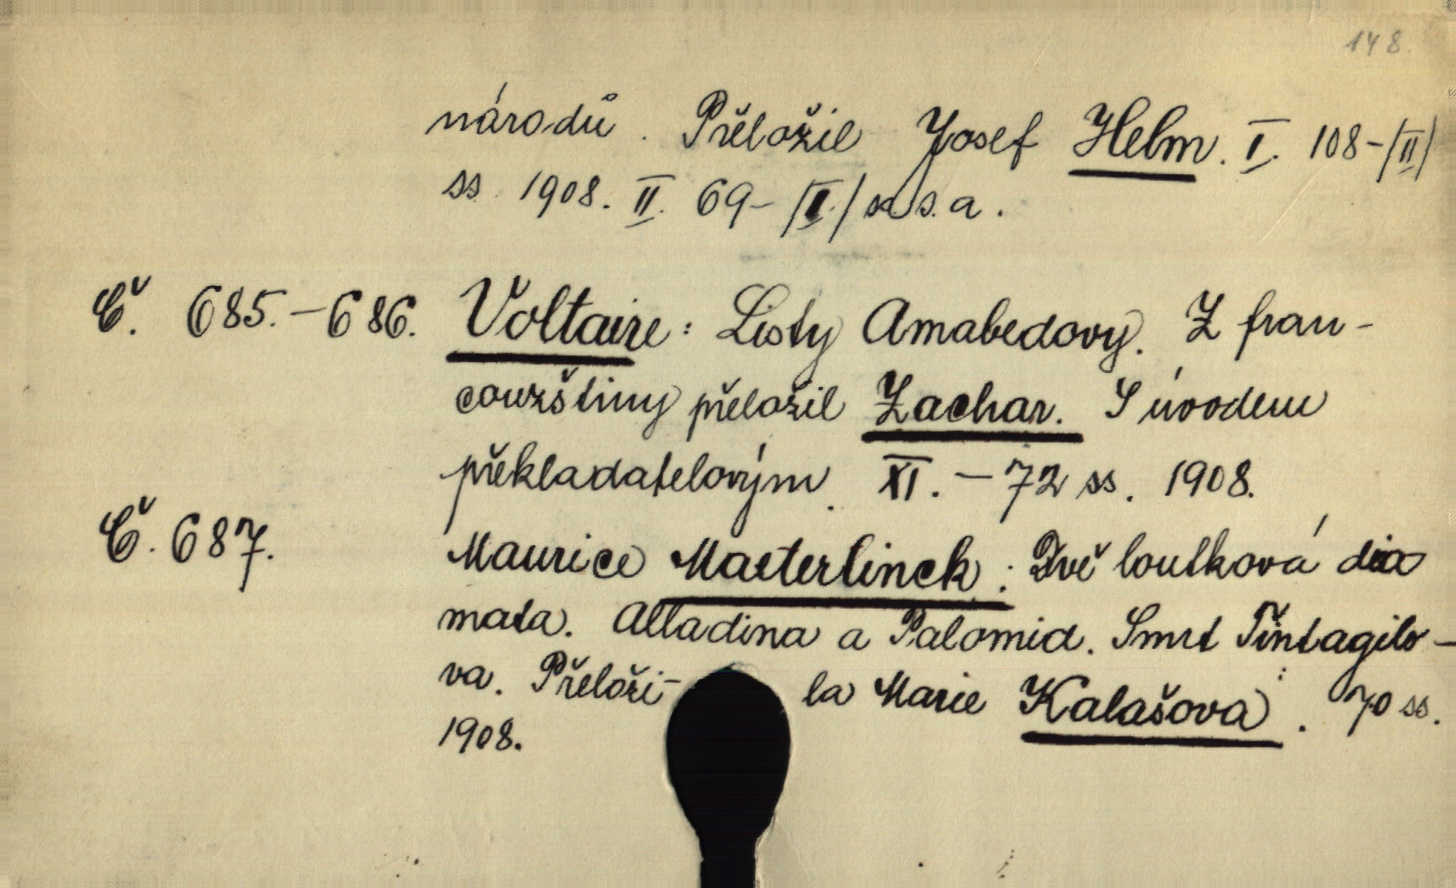 148.
národů. Přeložil Josef Helm. I. 108-/II/
ss. 1908. II. 69-/I./ s. a.
Č. 685.-686. Voltaire: Listy Amabedovy. Z fran-
couzštiny přeložil Zachar. S úvodem
překladatelovým. XI.-72 ss. 1908.
Č. 687. Maurice Maeterlinck: Dvě loutková dra
mata. Alladina a Palomid. Smrt Tintagilo-
va. Přeloži- la Marie Kalašova. 70 ss.
1908.